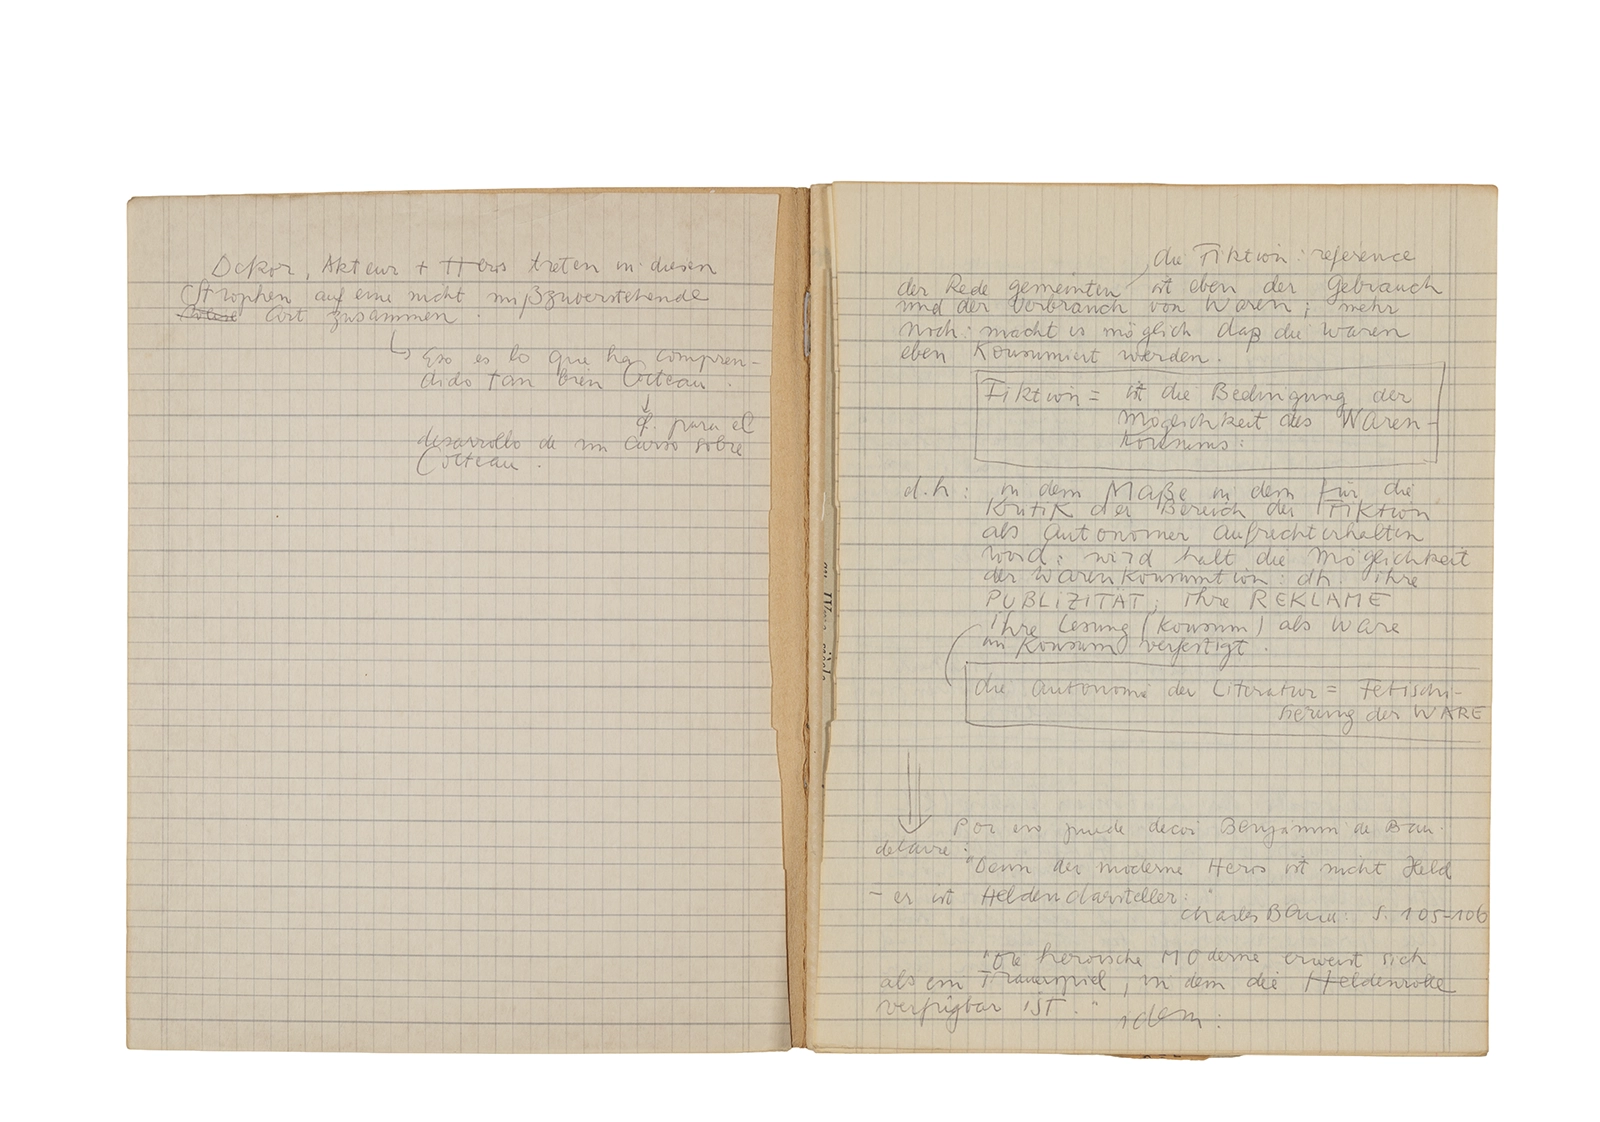 Dekor, Akteur + Heros treten in diesen
Strophen auf eine nicht mißzuverstehende
Art zusammen.
Eso es lo que ha compren-
dido tan bien Cocteau.
para el
desarrollo de un curso sobre
Cocteau.
die Fiktion: reference
der Rede gemeinten ist eben der Gebrauch
und der Verbrauch von Waren; mehr
noch: macht es möglich daß die Waren
eben Konsumiert werden.
Fiktion = ist die Bedingung der
Möglichkeit des Waren-
konsums:
d.h: in dem Maße in dem für die
Kritik der Bereich der Fiktion
als Autonomer Aufrechterhalten
wird: wird halt die Möglichkeit
der Warenkonsumtion: dh. ihre
PUBLIZITÄT, ihre REKLAME
ihre Lesung (Konsum) als Ware
im Konsum verfestigt.
die Autonomie der Literatur = Fetischi-
sierung der WARE
Por eso puede decir Benjamin de Bau-
delaire:
"Denn der moderne Heros ist nicht Held
- er ist Heldendarsteller."
Charles Baud: S. 105-106
"Die heroische Moderne erweist sich
als ein Trauerspiel, in dem die Heldenrolle
verfügbar IST."
idem: